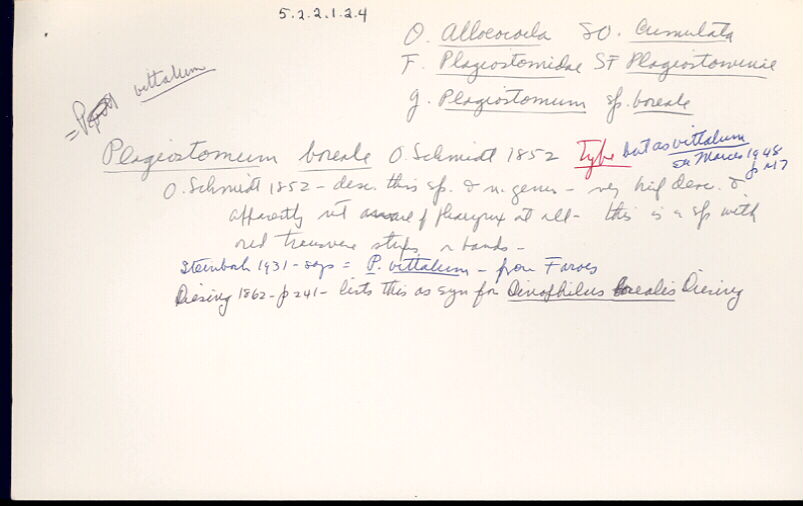 5.2.2.1.2.4
O. Allococoela SO. Cumulata
F. Plagiostomidae SF Plagiostominae
g. Plagiostomum sp. boreale
= P. vittatum
Plagiostomum boreale O. Schmidt 1852 Type but as vittatum
see Marcus 1948
p 117
O. Schmidt 1852 - desc. this sp. & n. genus - very brief desc. &
apparently not aware of pharynx at all - this is a sp with
red transverse stripes or bands -
Steinböh 1931 - says = P. vittatum - from Faroes
Diesing 1862 - p 241 - lists this as syn for Dinophilus borealis Diesing